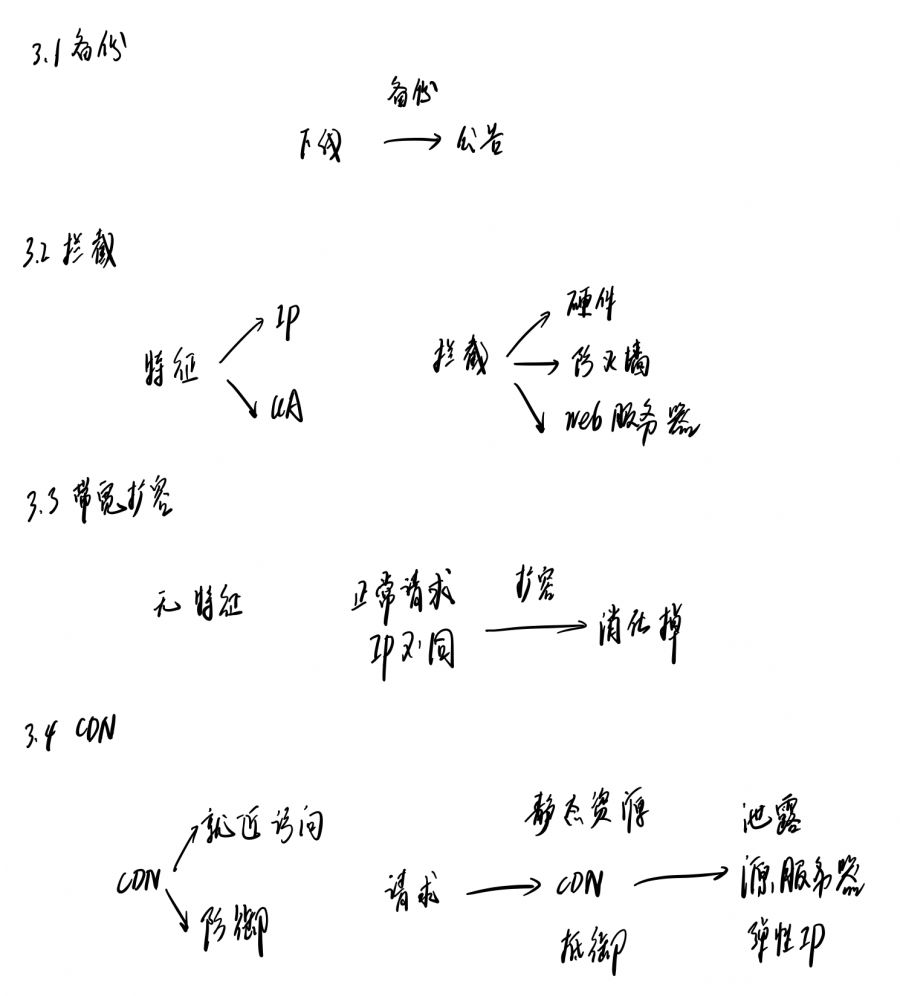 3.1 备份
备份
下线 → 公告
3.2 拦截
IP
特征
UA
硬件
拦截 → 防火墙
web服务器
3.3 带宽扩容
无特征
正常请求
扩容
IP不同 → 消化掉
3.4 CDN
就近访问
CDN
防御
静态资源
泄露
请求 → CDN → 源服务器
抵御
弹性IP